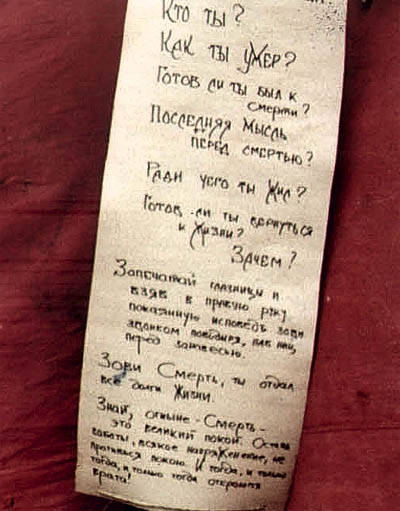 Кто ты?
Как ты умер?
Готов ли ты был к
смерти?
Последняя мысль
перед смертью?
Ради чего ты жил?
Готов ли ты вернуться
к жизни?
Зачем?
Запечатай глазницы и
взяв в правую руку
покаянную исповедь зови
звонком поводыря, пав ниц
перед занавесью.
Зови Смерть, ты отдал
все долги Жизни.
Знай, отныне - Смерть -
это великий покой. Оставь
заботы, всякое напряжение, не
противься покою. И тогда, и только
тогда, и только тогда откроются
врата!